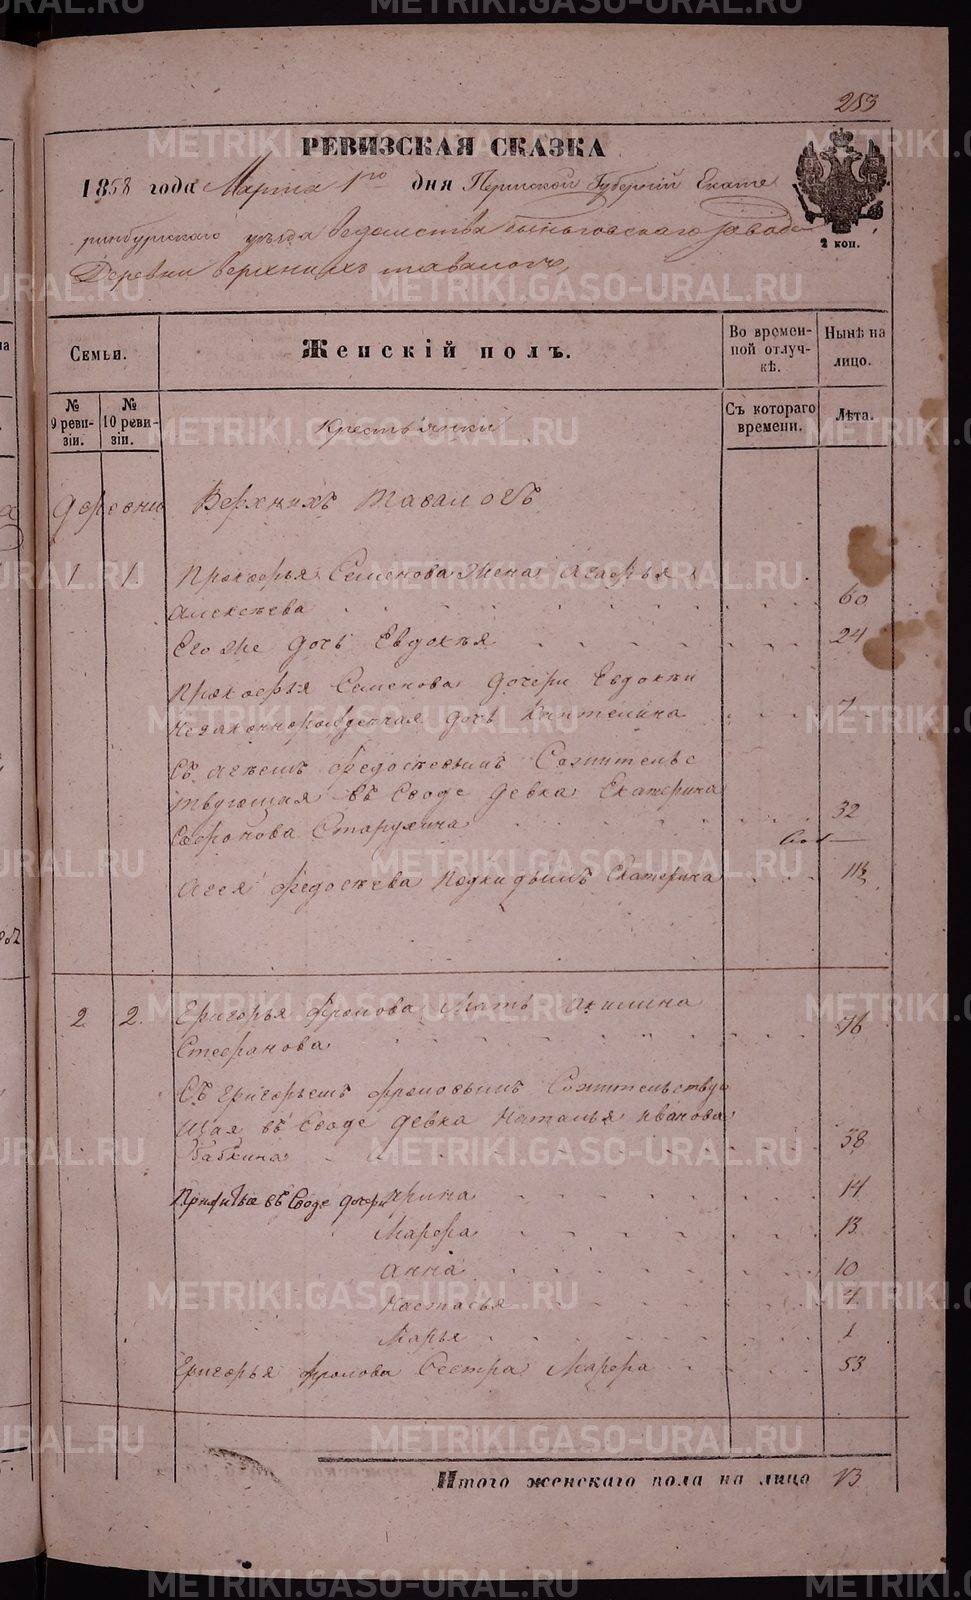 253
РЕВИЗСКАЯ СКАЗКА
1858 года Марта 1го дня Пермской Губерніи Екате
ринбургскаго уѣзда ведомства Быньговскаго завода
Деревни верхнихъ тавологъ
2 коп.
Семьи.
Женскій полъ.
Во времен-
ной отлуч-
кѣ.
Нынѣ на
лицо.
№
9 реви-
зіи.
№
10 реви-
зіи.
Крестьянки
Съ котораго
времени.
Лѣта.
деревни Верхнихъ Тавологъ
1 1. Прокофья Семенова жена Агафья
Алексѣева 60
Его же дочь Евдокѣя 24
Прокофья Семенова дочери Евдокѣи
незаконнорожденная дочь 7
Съ Федосѣевымъ Сожительс
твующая въ Своде девка Екатерина
Софронова Старухина 32
Федосѣева Екатерина
2 2. Григорья Фролова мать Акилина
Стефанова 76
Съ Григорьемъ Фроловымъ Сожительству
щая въ Своде девка Наталья Иванова
Бабкина 38
въ Своде дочери Ирина 14
Марфа 13
Анна 10
Настасья 4
Марья 1
Григорья Фролова Сестра Марфа 53
Итого женскаго пола на лицо 13
METRIKI.GASO-URAL.RU